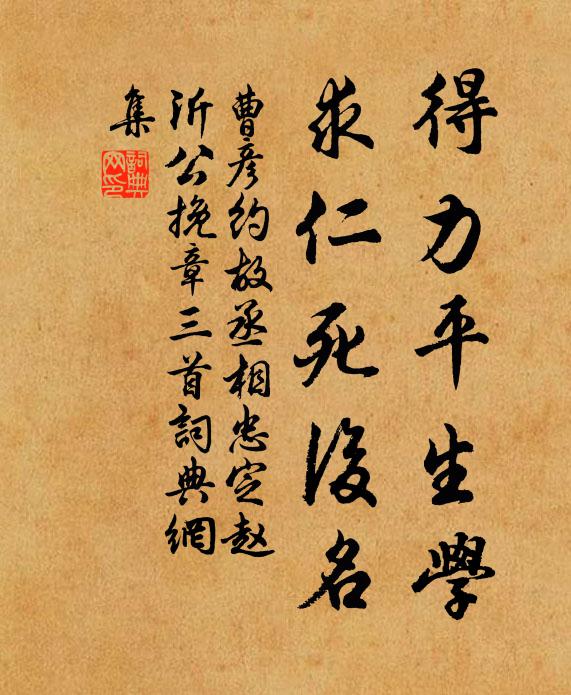 得力平生學
求仁死後名
曹彥約故丞相忠定赵
沂公挽章三首詞典網
集
詞典
网印